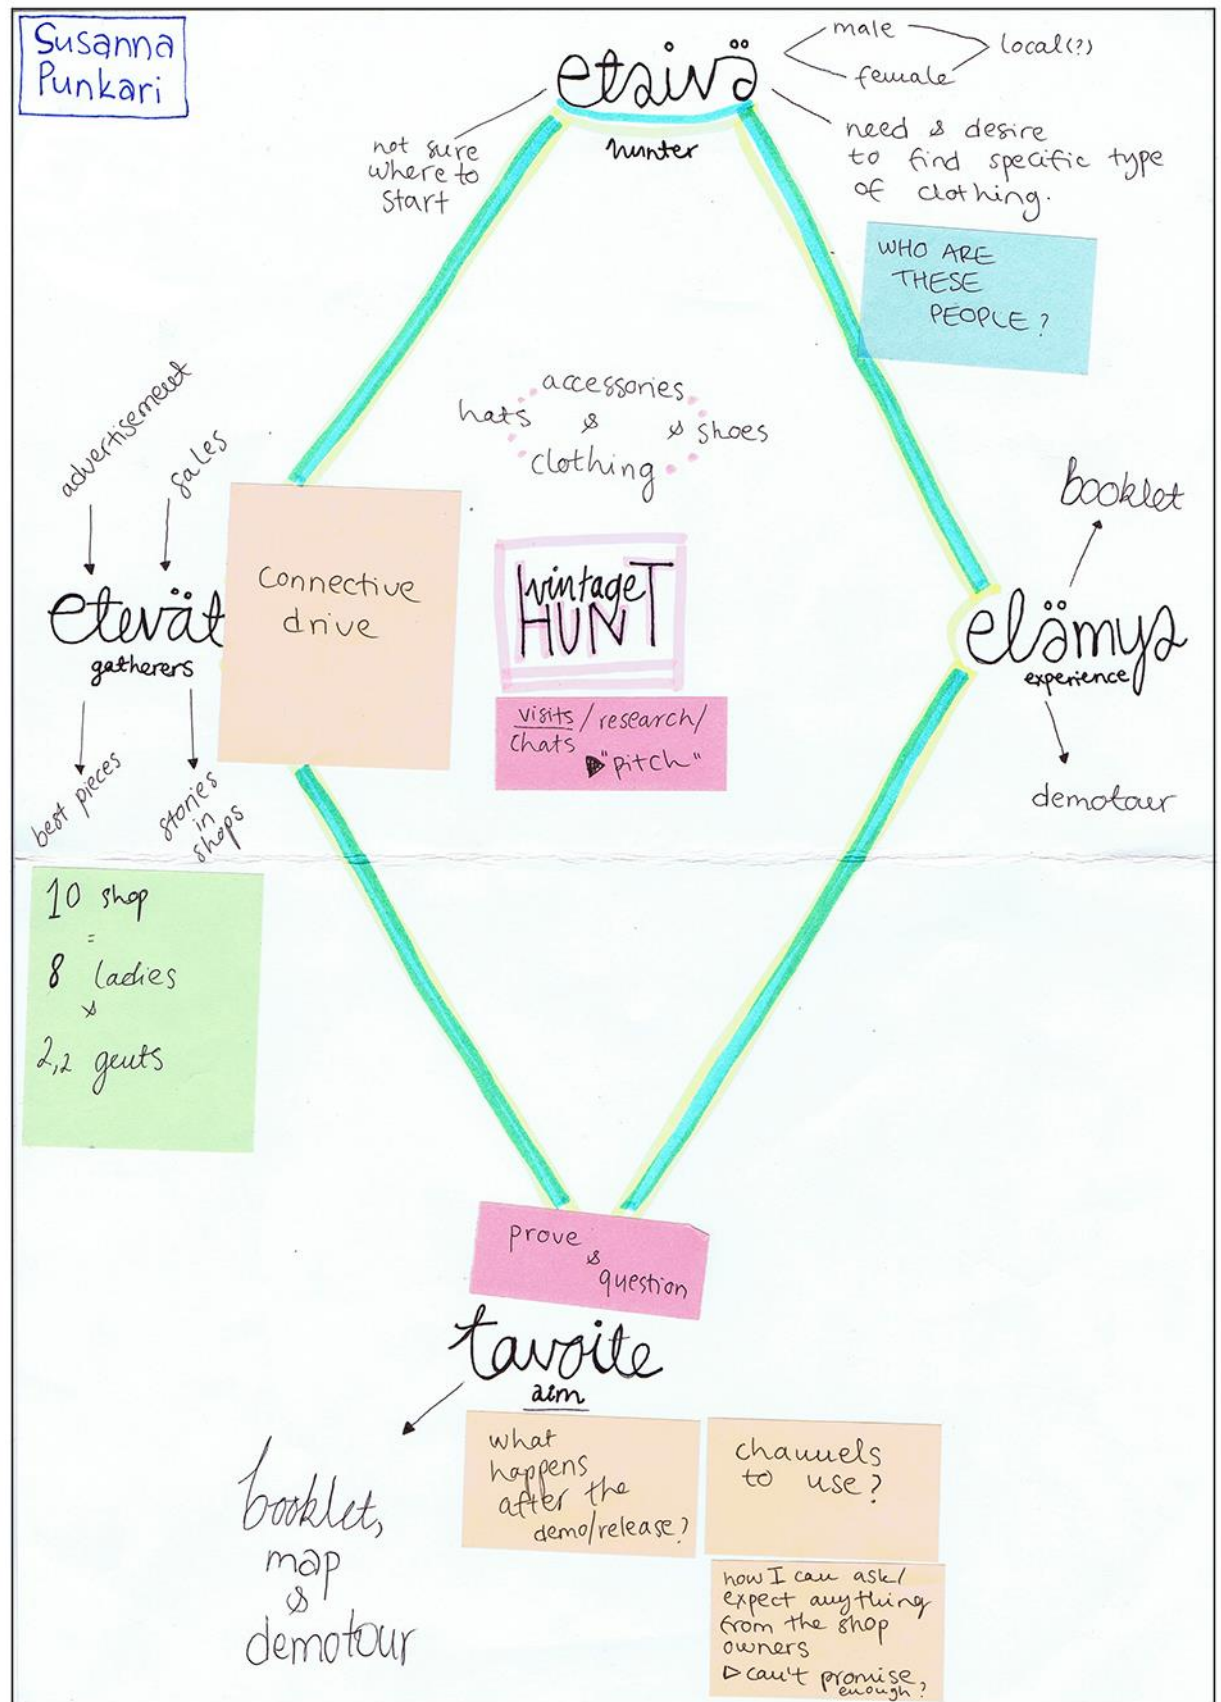 Susanna
Punkari
etsivä
hunter
male
female
local(?)
not sure
where to
start
need & desire
to find specific type
of clothing.
WHO ARE
THESE
PEOPLE?
accessories
hats & & shoes
clothing
advertisement
sales
etevät
gatherers
best pieces
stories
in
shops
Connective
drive
vintage
HUNT
visits / research/
chats
"pitch"
booklet
elämys
experience
demotour
10 shop
=
8 ladies
&
2,2 gents
prove
&
question
tavoite
aim
booklet,
map
&
demotour
what
happens
after the
demo/release?
channels
to use?
how I can ask/
expect anything
from the shop
owners
▷ can't promise
enough?